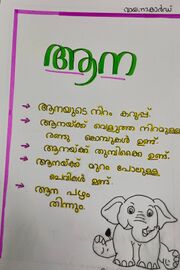 വായനാകാർഡ്
ആന
→ ആനയുടെ നിറം കറുപ്പ്.
→ ആനയ്ക്ക് വെളുത്ത നിറമുള്ള
രണ്ടു കൊമ്പുകൾ ഉണ്ട്.
→ ആനയ്ക്ക് തുമ്പിക്കൈ ഉണ്ട്.
→ ആനയ്ക്ക് മുറം പോലുള്ള
ചെവികൾ ഉണ്ട്.
→ ആന പഴം
തിന്നും.